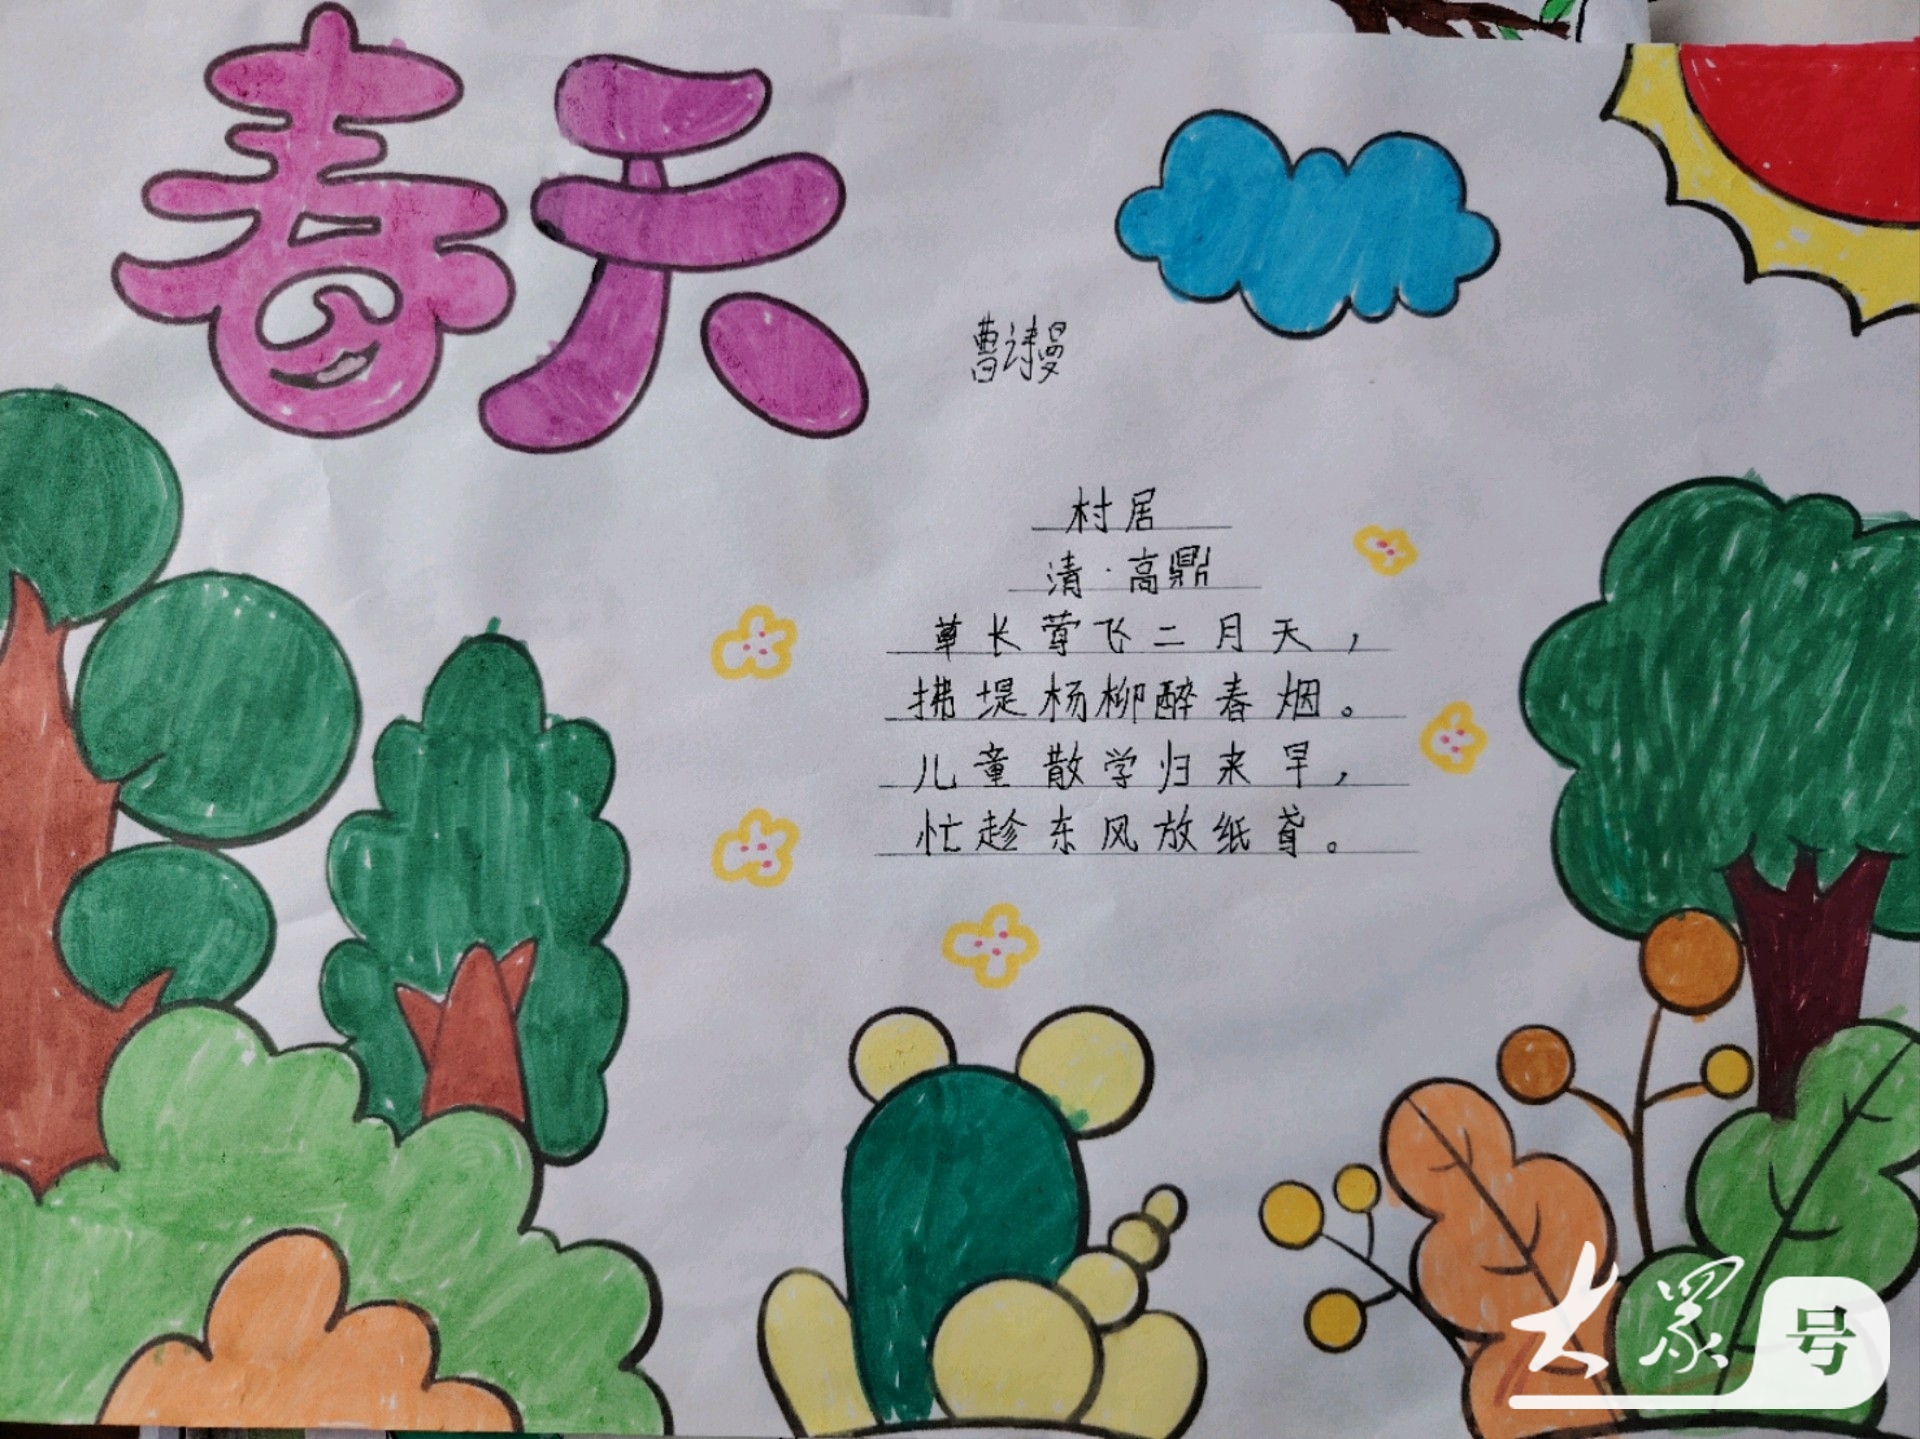 春天
曹诗曼
村居
清·高鼎
草长莺飞二月天，
拂堤杨柳醉春烟。
儿童散学归来早，
忙趁东风放纸鸢。
大众号